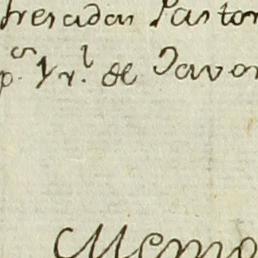 tresadas Pastor
p.cn Yr.l de Tavor
Memo